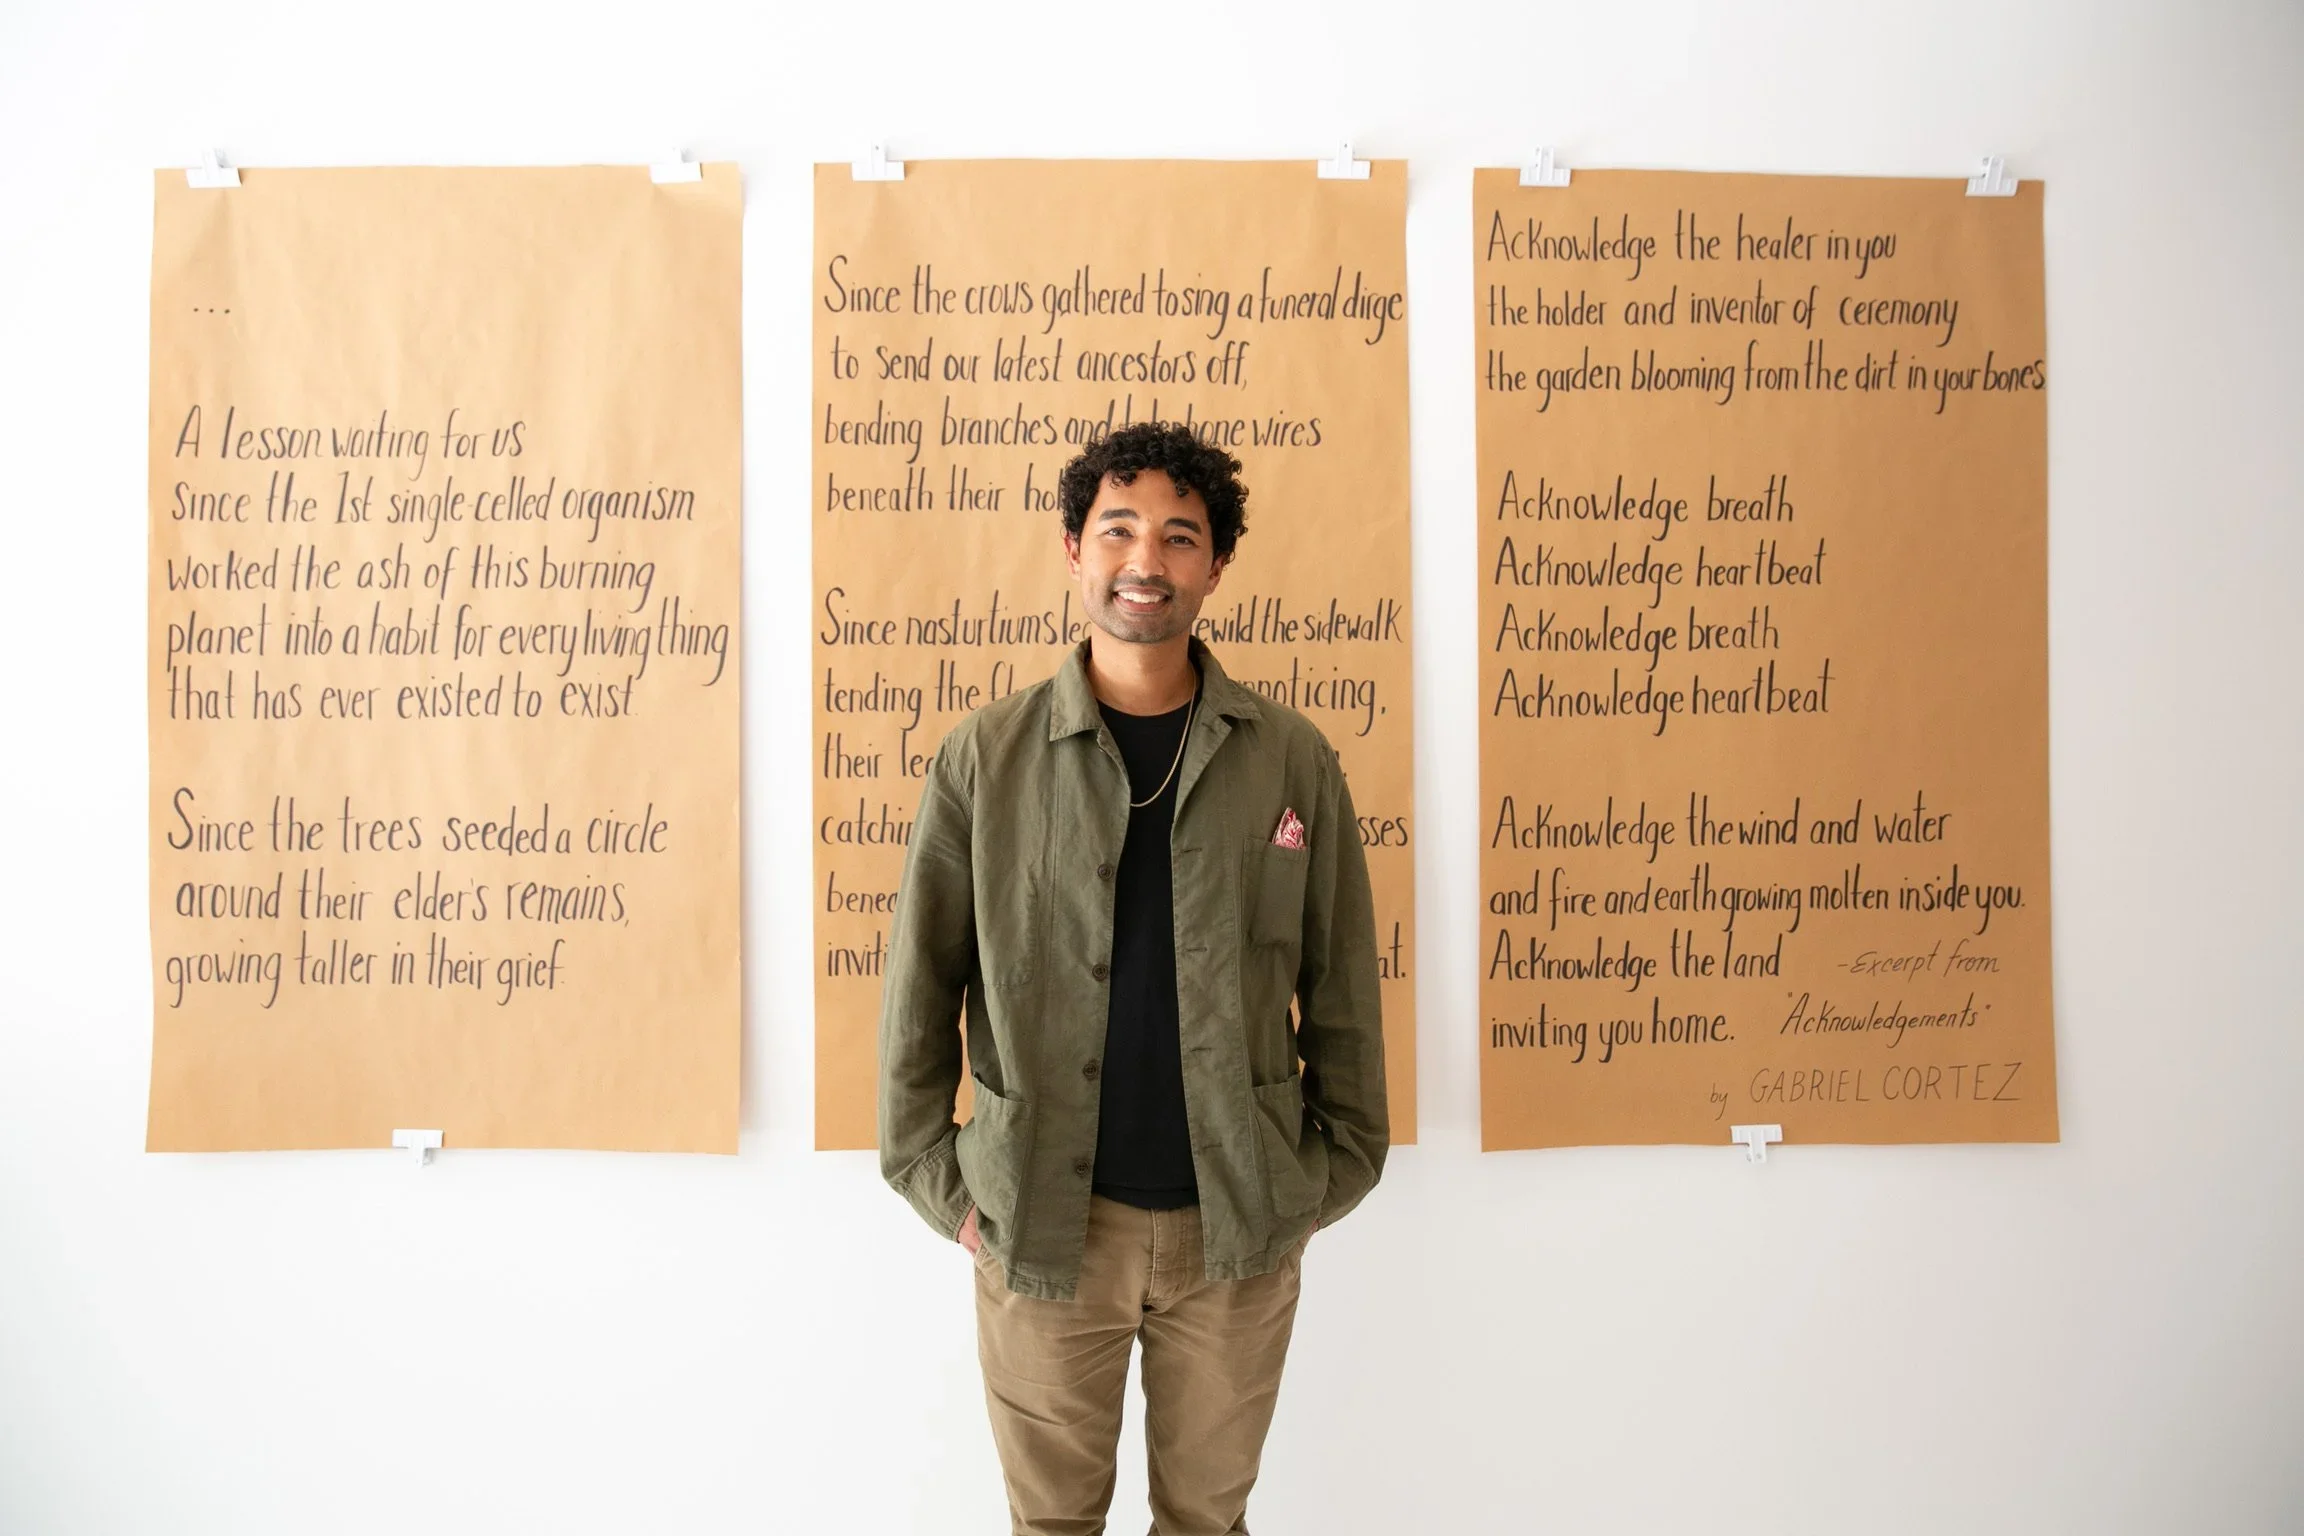 ...
A lesson waiting for us
Since the 1st single-celled organism
worked the ash of this burning
planet into a habit for every living thing
that has ever existed to exist.
Since the trees seeded a circle
around their elder's remains,
growing taller in their grief.
Since the crows gathered to sing a funeral dirge
to send our latest ancestors off,
bending branches and telephone wires
beneath their
Since nasturtiums the sidewalk
tending the
their
at.
Acknowledge the healer in you
the holder and inventor of ceremony
the garden blooming from the dirt in your bones
Acknowledge breath
Acknowledge heartbeat
Acknowledge breath
Acknowledge heartbeat
Acknowledge the wind and water
and fire and earth growing molten inside you.
Acknowledge the land
inviting you home.
-Excerpt from
"Acknowledgements"
by GABRIEL CORTEZ